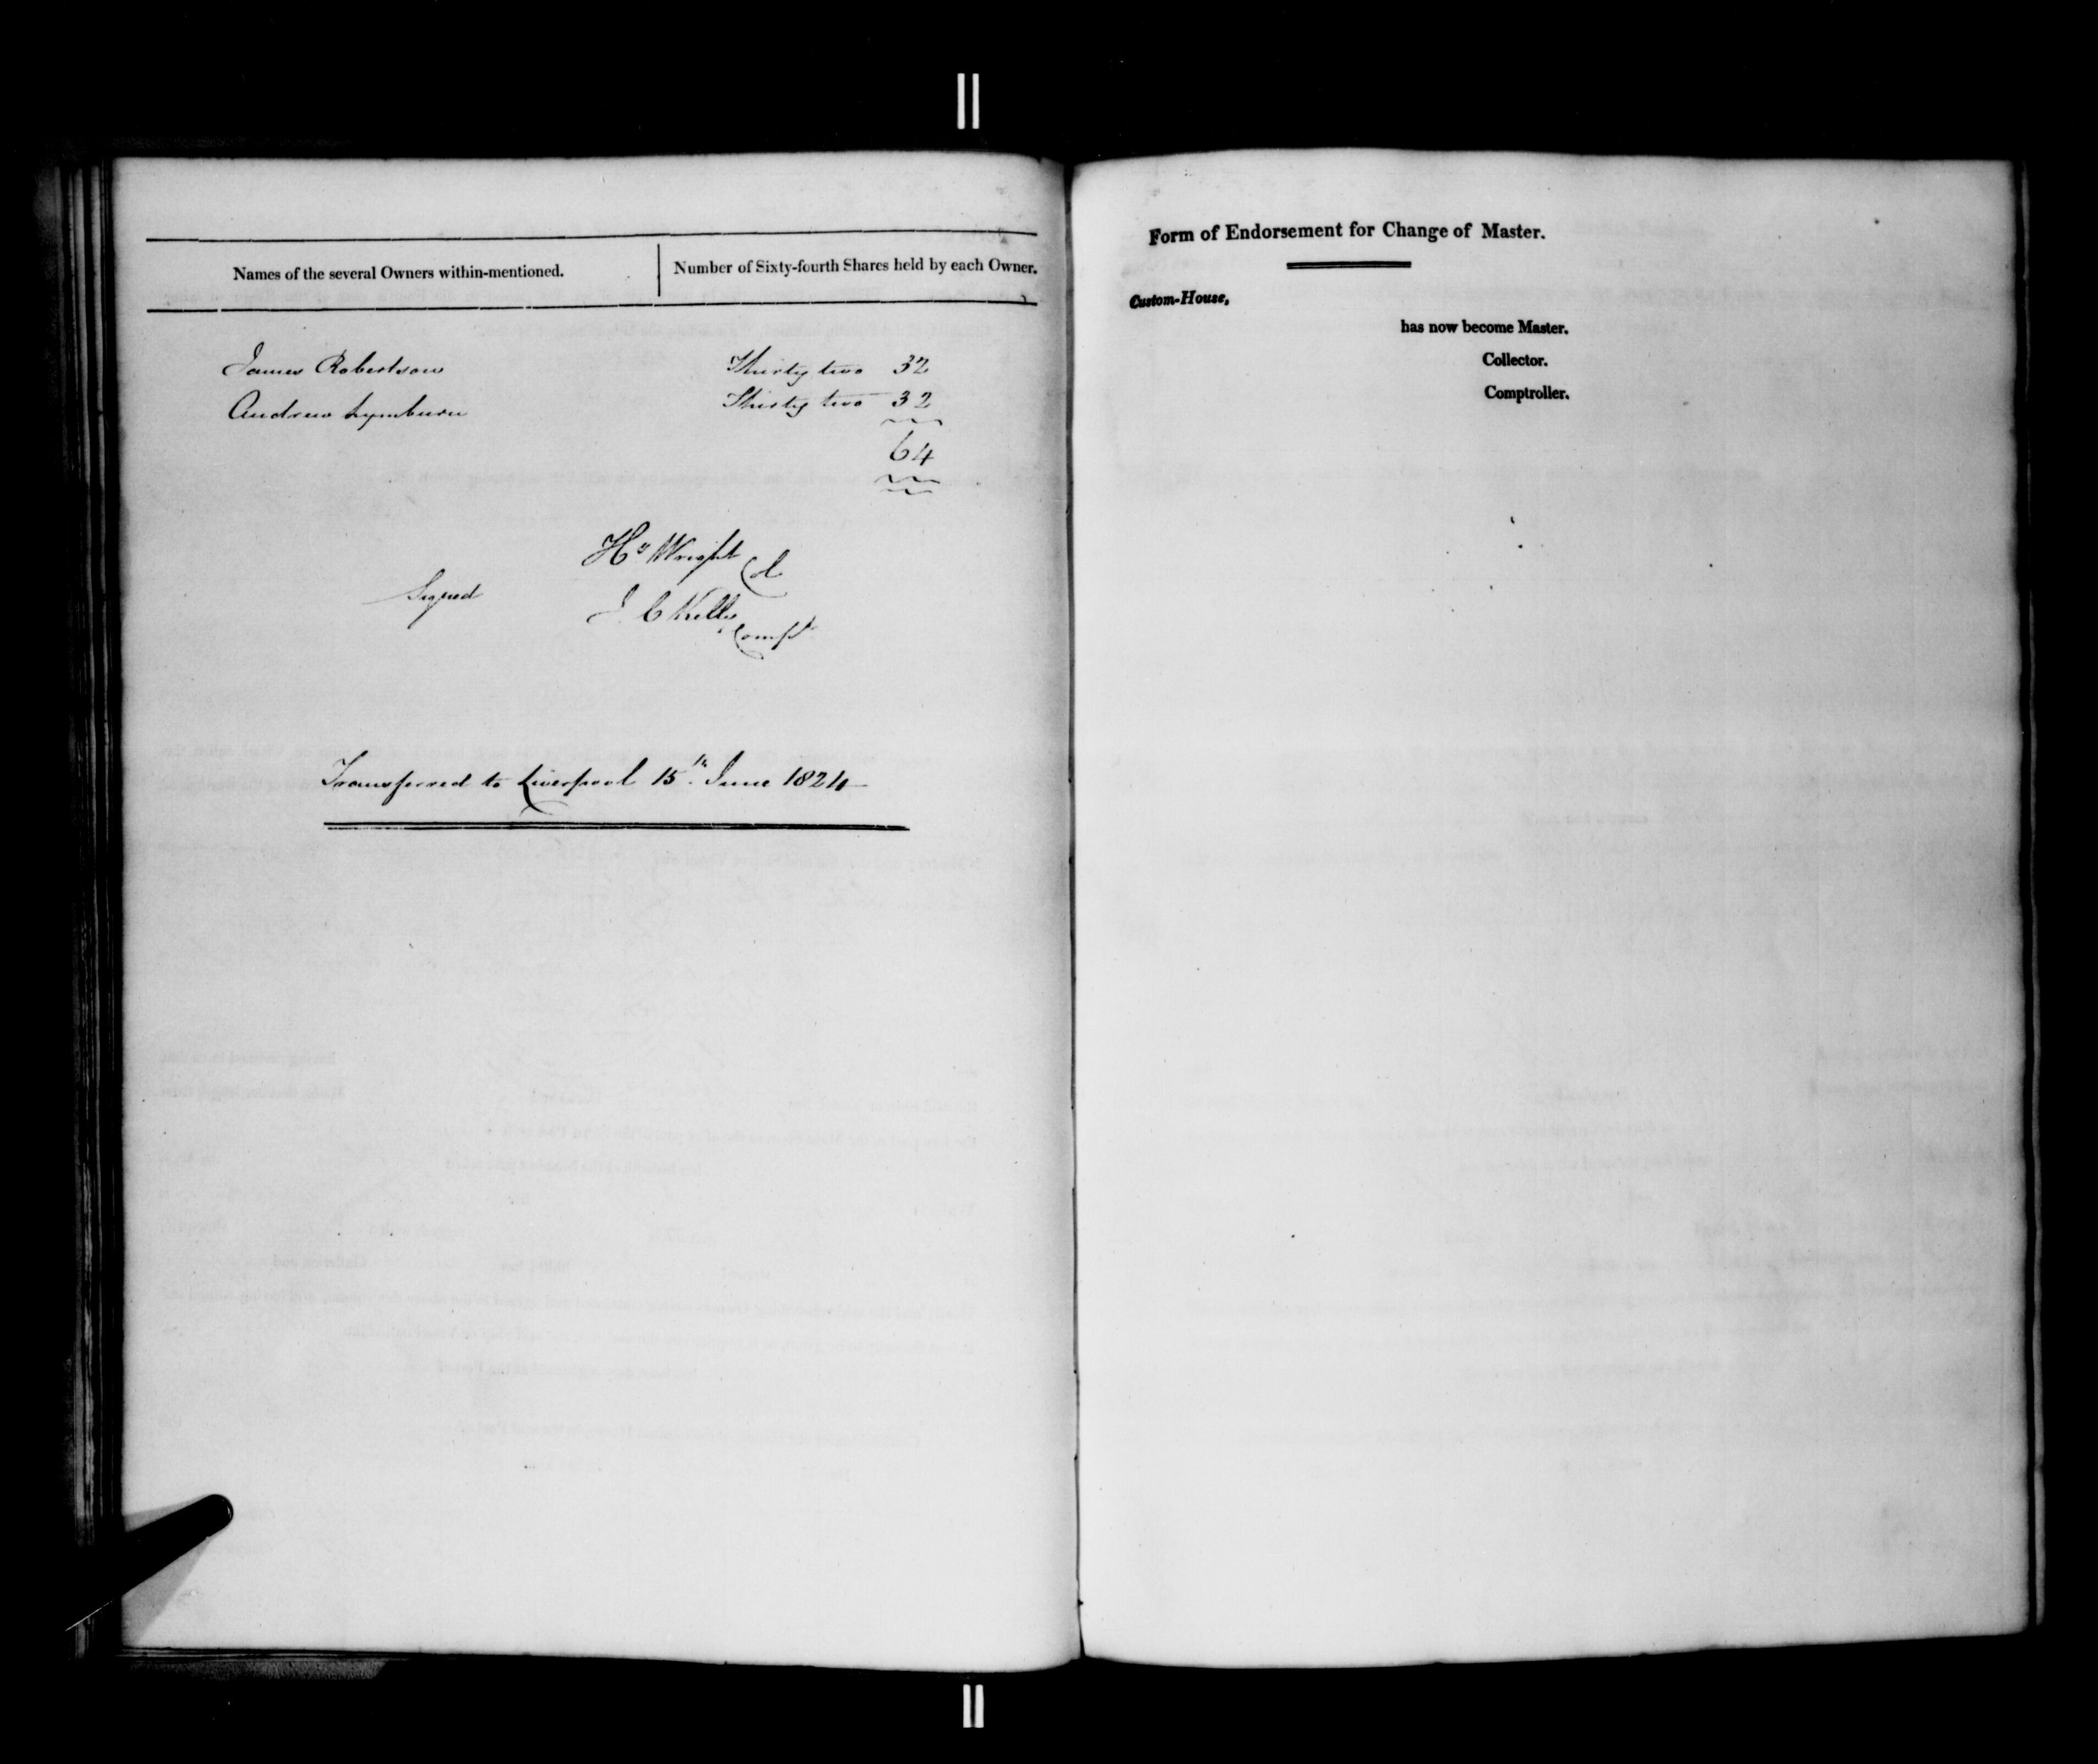 Names of the several Owners within-mentioned. Number of Sixty-fourth Shares held by each Owner.
James Robertson Thirty two 32
Andrew Lymburn Thirty two 32
64
Hy Wright Col
Signed
J C Kelly Compt
Transferred to Liverpool 15th June 1824
Form of Endorsement for Change of Master.
Custom-House,
has now become Master.
Collector.
Comptroller.